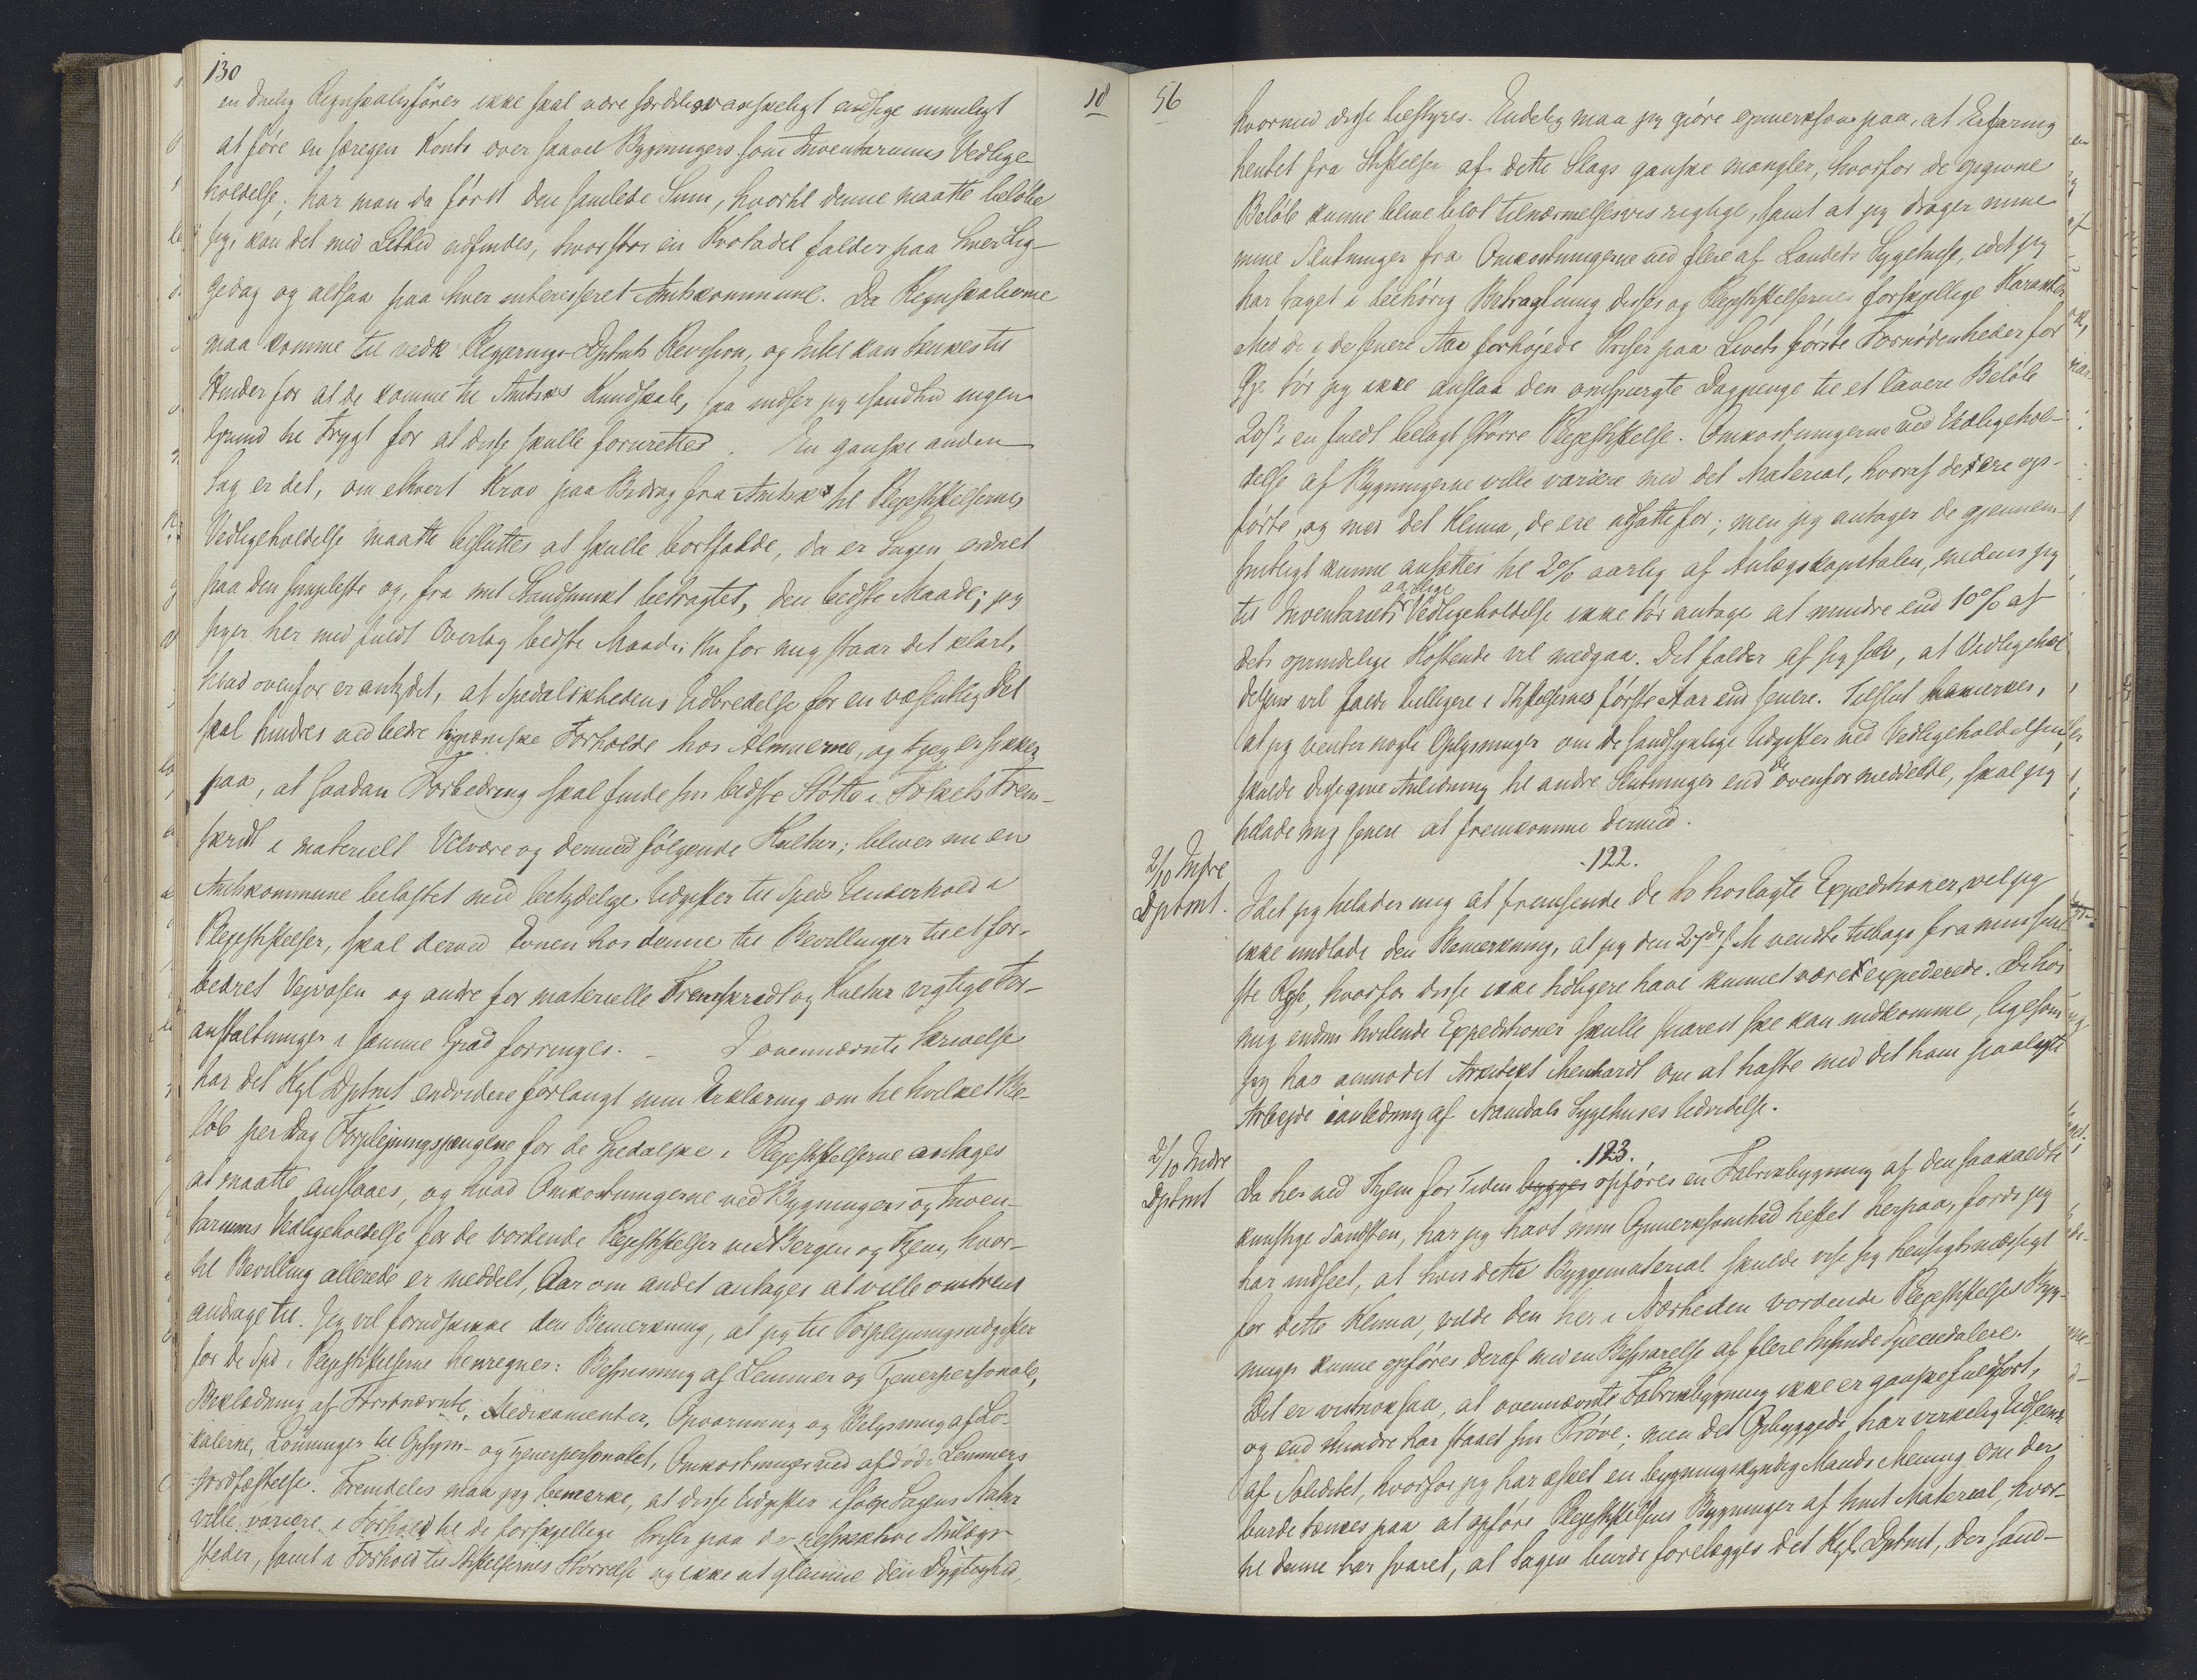 130
en duelig Regnskabsfører ikke skal være særdeles vanskeligt endsige umuligt
at føre en særegen Konto over saavel Bygningers som Inventariums Vedlige-
holdelse; har man da først den samlede Sum, hvortil denne maatte beløbe
sig, kan det med Lethed udfindes, hvor stor en Kvotadel falder paa hver Lig-
gedag og altsaa paa hver interesseret Amtskommune. Da Regnskaberne
maa komme til vedk Regjerings-Dptmts Revision, og Intet kan tænkes til
Hinder for at de komme til Amtsks Kundskab, saa indser jeg isandhed ingen
Grund til Frygt for at disse skulle forurettes. En ganske anden
Sag er det, om ethvert Krav paa Bidrag fra Amtsk til Plejestiftelsernes
Vedligeholdelse maatte besluttes at skulle bortfalde, da er Sagen ordnet
paa den simpleste og, fra mit Standpunkt betragtet, den bedste Maade; jeg
siger her med fuldt Overlæg bedste Maade; thi for mig staar det klart,
hvad ovenfor er antydet, at Spedalskhedens Udbredelse for en væsentlig Del
skal hindres ved bedre hygieniske Forholde hos Almuerne, og jeg er sikker
paa, at saadan Forbedring skal finde sin bedste Støtte i Folkets Frem-
skridt i materielt Velvære og dermed følgende Kultur; bliver nu en
Amtskommune belastet med betydelige Udgifter til Speds Underhold i
Plejestiftelser, skal derved Evnen hos denne til Bevillinger til et for-
bedret Vejvæsen og andre for materielle Fremskridt og Kultur vigtige For-
anstaltninger i samme Grad forringes. – I ovennævnte Skrivelse
har det Kgl Dptmt endvidere forlangt min Erklæring om til hvilket Be-
løb per Dag Forplejningspengene for de Spedalske i Plejestiftelserne antages
at maatte ansløaes, og hvad Omkostningerne ved Bygningens og Inven-
tariums Vedligeholdelse for de vordende Plejestiftelser ved Bergen og Thjem, hvor-
til Bevilling allerede er meddelt, Aar om andet antages at ville omtrent
andrage til. Jeg vil forudskikke den Bemærkning, at jeg til Forplejningsudgifter
for de Spd i Plejestiftelserne henregnes: Bespisning af Lemmer og Tjenerpersonale,
Beklædning af Førstnævnte, Medikamenter, Opvarmning og Belysning af Lo-
kalerne, Lønninger til Opsyns- og Tjenerpersonalet, Omkostninger ved afdøde Lemmers
Jordfæstelse. Fremdeles maa jeg bemærke, at disse Udgifter ifølge Sagens Natur
ville variere i Forhold til de forskjellige Priser paa de respektive Anlægs-
steder, samt i Forhold til Stiftelsernes Størrelse og ikke at glemme den Dygtighed,
18
56
hvormed disse bestyres. Endelig maa jeg gjøre opmerksom paa, at Erfaring
hentet fra Stiftelser af dette Slags ganske mangler, hvorfor de opgivne
Beløb kunne blive blot tilnærmelsesvis rigtige, samt at jeg drager mine
mine Slutninger fra Omkostningerne ved flere af Landets Sygehuse, idet jeg
har taget i tilbørig Betragtning disses og Plejestiftelsernes forskjellige Karakter
Med de i de senere Aar forhøjede Priser paa Livets første Fornødenheder for
Øje tør jeg ikke anslaa den omspurgte Dagpenge til et lavere Beløb
20 s i en fuldt belagt større Plejestiftelse. Omkostningerne ved Vedligehol-
delse af Bygningerne ville variere med det Material, hvoraf de ere op-
førte, og med det Klima, de ere udsatte for; men jeg antager de gjennem-
snitligt kunne ansættes til 2% aarlig af Anlægskapitalen, medens jeg
aarlige
til Inventariets Vedligeholdelse ikke tør antage at mindre end 10% af
dets oprindelige Kostende vil medgaa. Det falder af sig selv, at Vedligehol
delsen vil falde billigere i Stiftelsernes første Aar end senere. Tilslut bemærkes,
at jeg venter nogle Oplysninger om de sandsynlige Udgifter ved Vedligeholdelsen;
skulde disse give Anledning til andre Slutninger end de ovenfor meddelte, skal jeg
tillade mig senere at fremkomme dermed.
122.
2/10 Indre
Dptmt.
Idet jeg tillader mig at fremsende de hoslagte Expeditioner, vil jeg
ikke undlade den Bemærkning, at jeg den 27de f. M vendte tilbage fra min sid
ste Rejse, hvorfor disse ikke tidligere have kunnet være expederede. De hos
mig endnu hvilende Expeditioner skulle snarest ske kan indkomme, ligesom
jeg har anmodet Arkitekt Menhardt om at haste med det ham paalagte
Arbejde i anledning af Namdals Sygehuses Udvidelse.
123.
2/10 Indre
Dptmt
Da her ved Thjem for Tiden bygges opføres en Fabrikbygning af den saakaldte
kunstige Sandsten, har jeg havt min Opmerksomhed heftet herpaa, fordi jeg
har indseet, at hvis dette Byggematerial skulde vise sig hensigtsmæssigt
for dette Klima, vilde den her i Nærheden vordende Plejestiftelses Byg-
ninger kunne opføres deraf med en Besparelse af flere tusinde Speciedalere.
Det er vistnok saa, at ovennævnte Fabrikbygning ikke er ganske fuldført,
og end mindre har staaet sin Prøve; men det Opbyggede har virkelig Udseende
af Soliditet, hvorfor jeg har æsket en bygningskyndig Mands Mening om der
burde tænkes paa at opføre Plejestiftelsens Bygninger af hint Material, hvor-
til denne har svaret, at Sagen burde forelægges det Kgl. Dptmt, der sand-